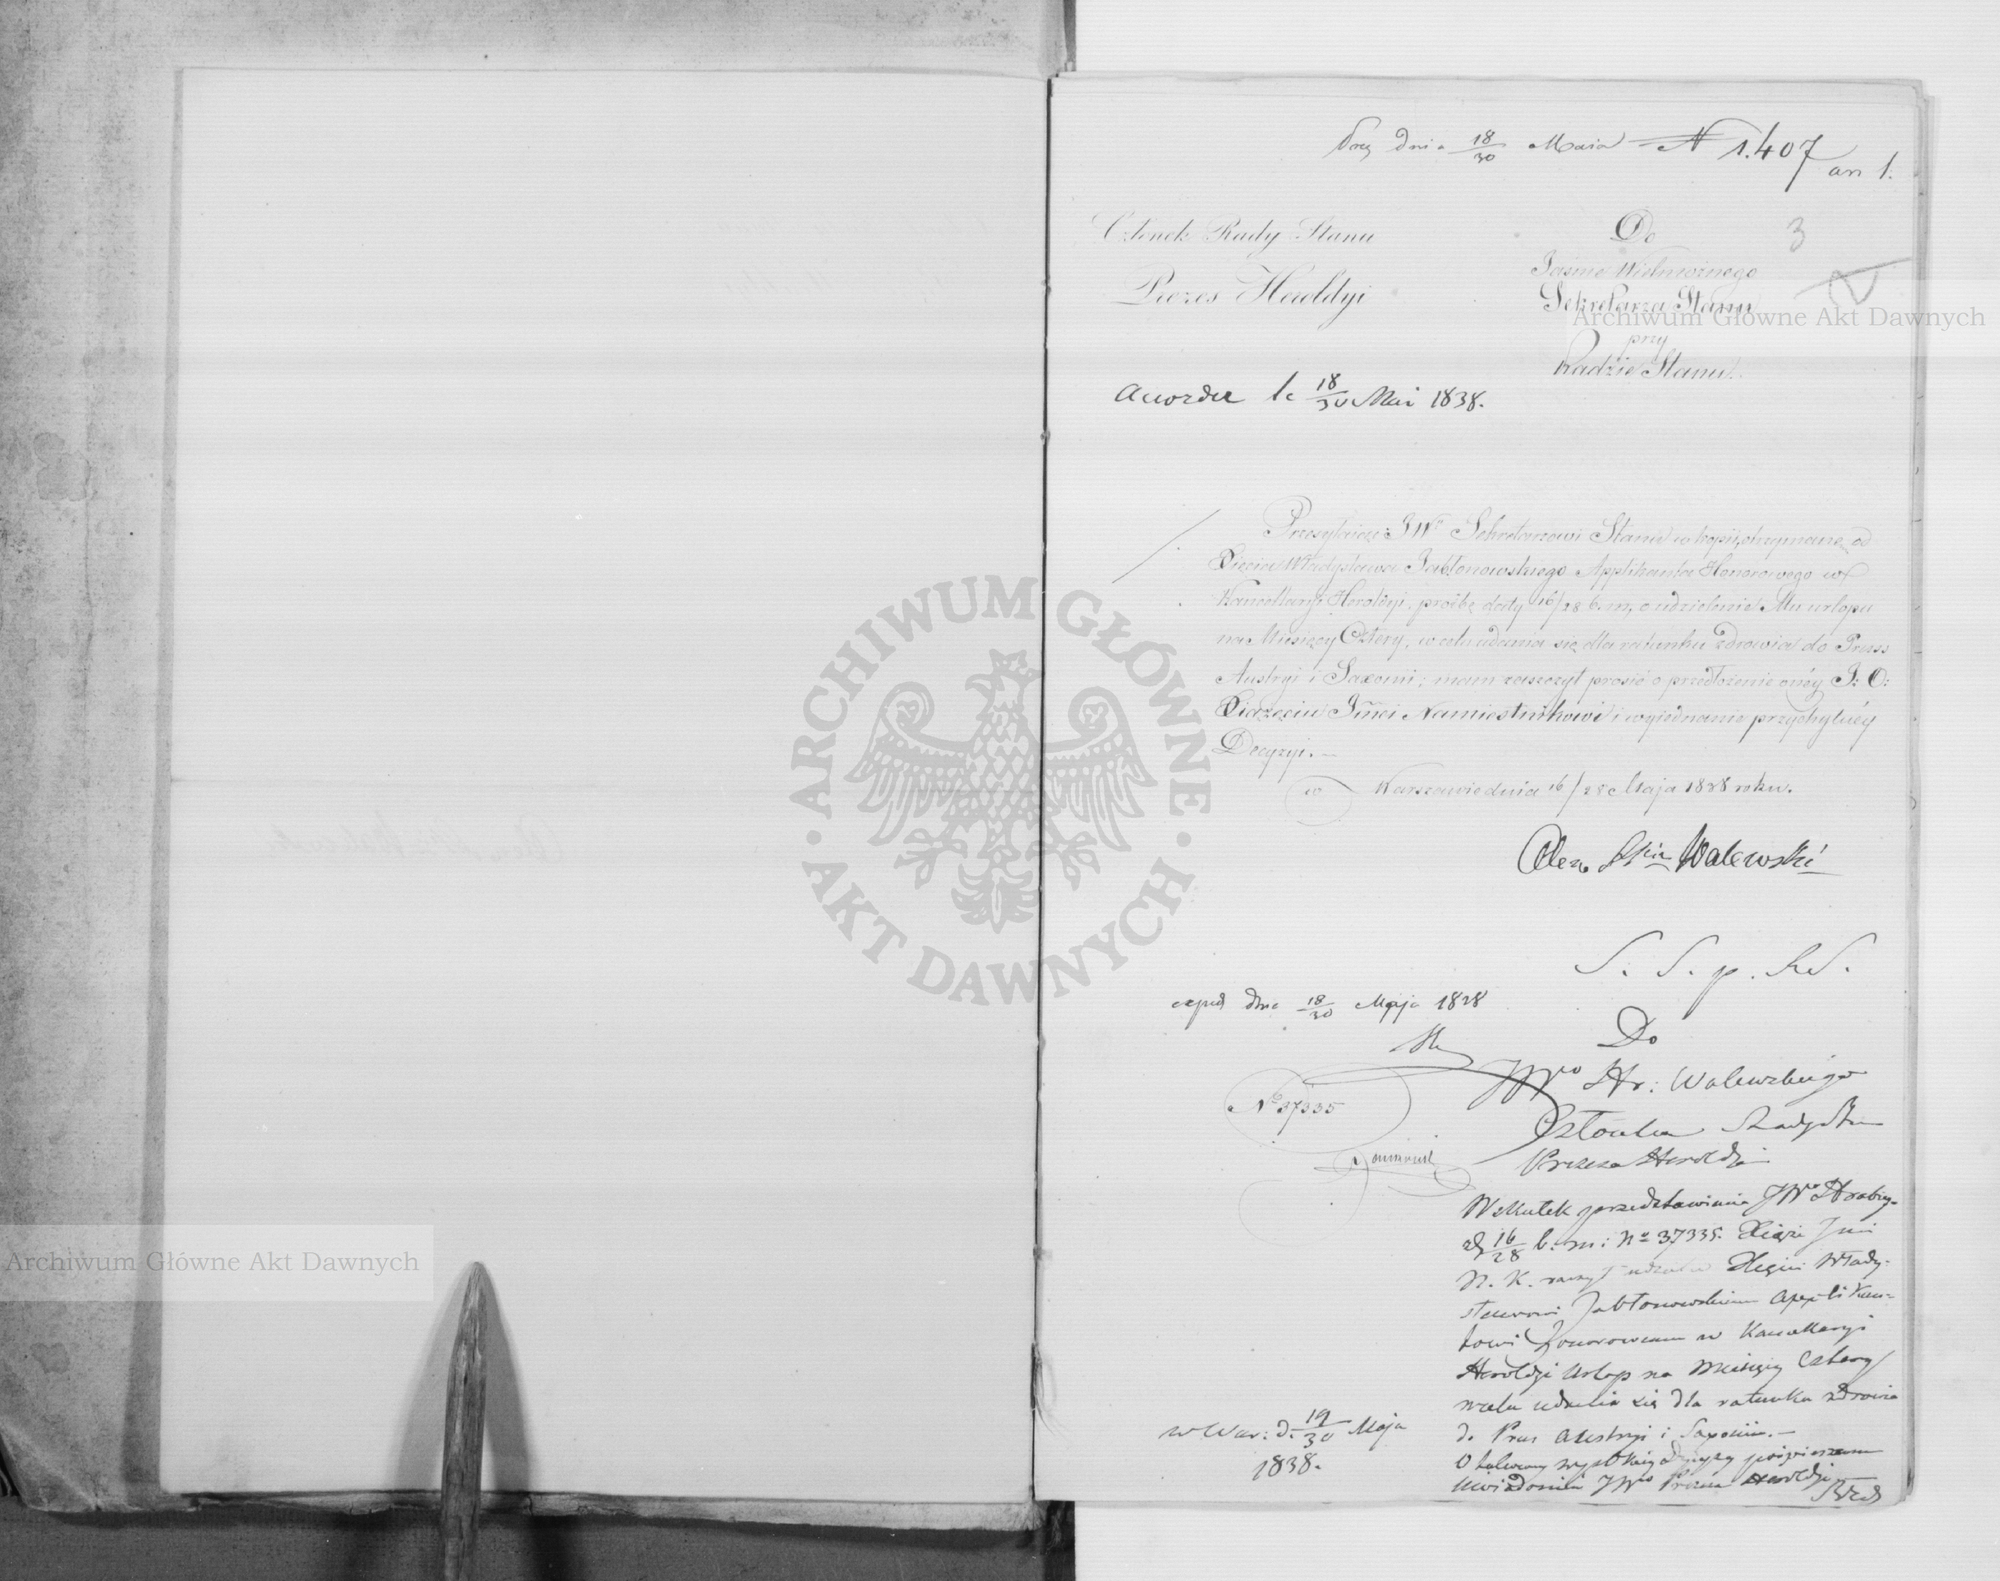 Prez dnia 18/30 Maia N 1.407
an 1.
3
Członek Rady Stanu
Prezes Heroldyi
Do
Jaśnie Wielmożnego
Sekretarza Stanu
przy
Radzie Stanu.
Accordée le 18/30 Mai 1838.
Przesyłaiąc JWu Sekretarzowi Stanu w kopii, otrzymaną od
Xięcia Władysława Jabłonowskiego Applikanta Honorowego w
Kancellaryi Heroldyi, prośbę daty 16/28 b. m, o udzielenie Mu urlopu
na Miesięcy Cztery, w celu udania się dla ratunku zdrowia do Pruss
Austryi i Saxonii; mam zaszczyt prosić o przedłożenie onéy J: O:
Xiążęciu Jmci Namiestnikowi i wyiednanie przychylnéy
Decyzyi. —
w Warszawie dnia 16/28 Maja 1838 roku.
Alex Walewski
S. S. p. R S.
exped dnia 18/30 Maja 1838
Do
JWo Hr: Walewskiego
Członka Rady Stanu
Prezesa Heroldyi
No 37335
Wskutek przedstawienia JWo Hrabiy-
16/28 b: m: No 37335. Xiąże Jmć
N. K. raczył udzielić Xięciu Włady-
sławowi Jabłonowskiemu Applikan-
towi Honorowemu w Kancellaryi
Heroldyi Urlop na Miesięcy Cztery
w celu udania się dla ratunku zdrowia
do Prus Austryi i Saxonii. —
O takowey wysokiey decyzyi pośpieszam
uwiadomić JWo Prezesa Heroldyi
w War: d. 19/30 Maja
1838.
Archiwum Główne Akt Dawnych
Archiwum Główne Akt Dawnych
ARCHIWUM GŁÓWNE · AKT DAWNYCH ·